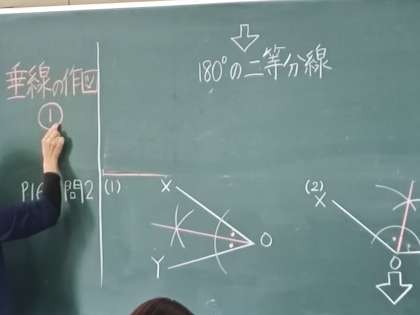 180°の二等分線
垂線の作図
①
P16 問2
(1)
X
O
Y
(2)
X
O